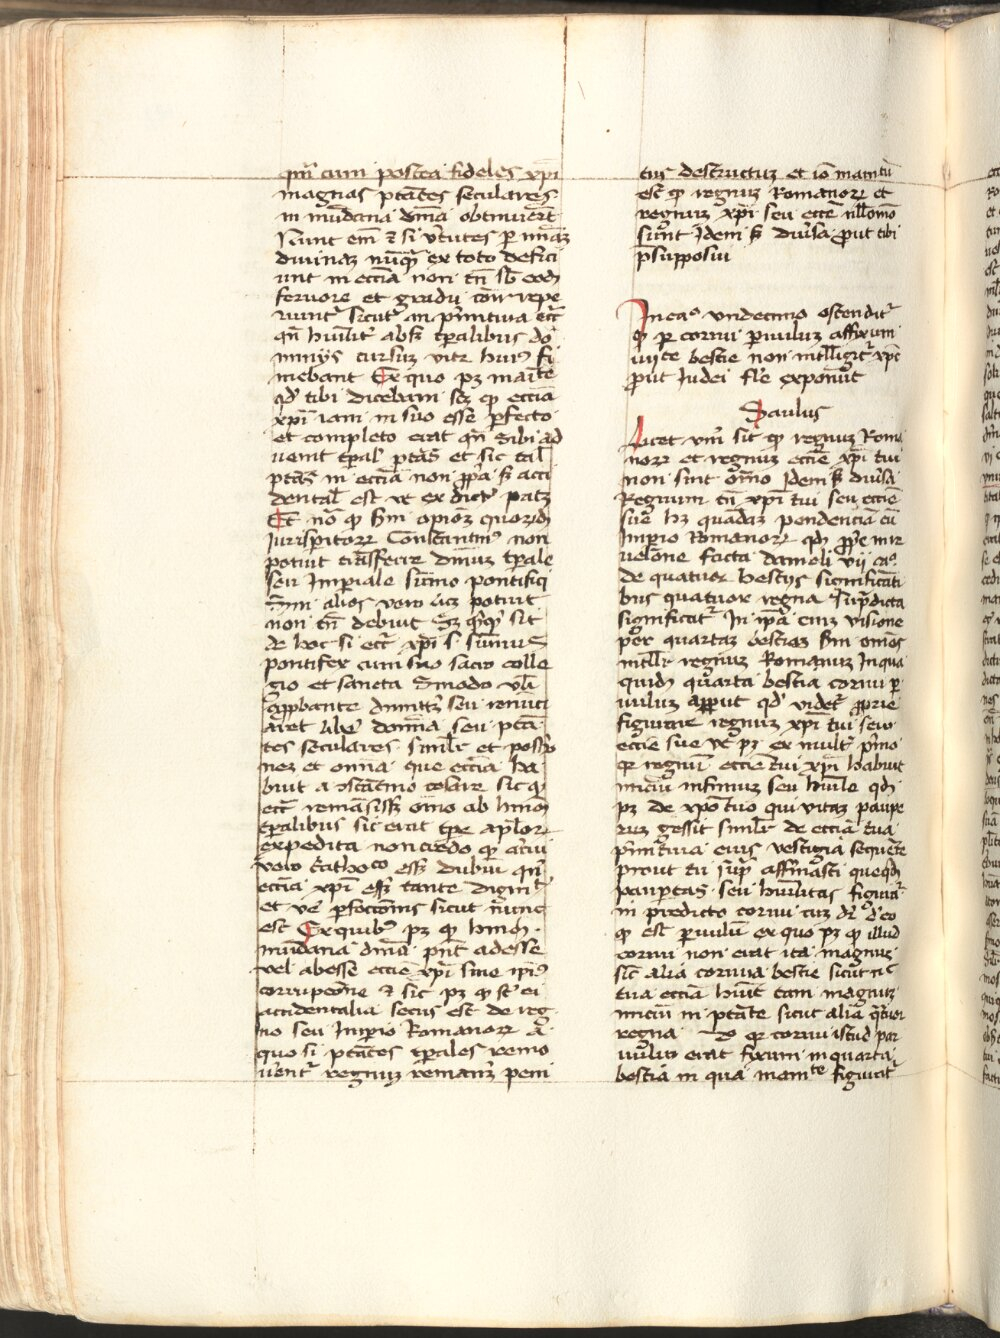 qm̄ cum postea fideles xp̄i
magnas ptātes seculares
in mūdana dn̄ia obtinuerīt
Nunc em̄ & si v̓tutes per
divinaz nūqz ex toto defici
unt in eccīa non tn̄ sb̄ eodē
fervore et gradu cōiter repe
riunt᷑ sicut in p̓mitiva eccīa
qn̄ huīlit᷑ absqz tp̄alibus do
minijs cursum vite hui᷒ fi
niebant Ex quo pz
qd̓ tibi dicebam scz qp̄ eccīa
xp̄i iam in suo esse p̄fecto
et completo erat qn̄ sibi ad
venit tp̄al̓ ptās et sic tal̓
ptās in eccīa non p̄p̓a sz acci
dental̓ est vt ex dict᷑ patz
Et nō qp̄ sm̄ opiōz quorūdā
Jurisperitorꝝ Constantin᷒ non
potuit trāsferre dn̄iuz tp̄ale
seu Imperiale sūmo pontifici
sm̄ alios vero licz potuit
non tn̄ debuit Sz sit
de hoc si eccīa xp̄i s̓ sūmus
pontifex cum suo sacro colle
gio et sancta Sinodo vlī
app̄bante dimitt᷑ seu renūci
aret lib̓e domīa seu ptā
tes seculares similr̄ et possīo
nes et omīa que eccīa ha
buit a 9stātino citra sic qp̄
eccīa remāsiss̓ om̄o ab hmōi
tp̄alibus sic erat tp̄e apl̄orꝝ
expedita non credo qp̄
vero catholico ess̓ dubiū qn̄
eccīa xp̄i ess̓ tante dignit᷑
et v̓e p̄fectionis sicut nūnc
est Ex quib᷒ pz qp̄ hmōi
mūdana dn̄ia pn̄t adesse
vel abesse eccīe xp̄i sine ip̄i᷒
corrupcōne & sic pz qp̄ sūt ei
accidentalia secus est de reg
no seu Imp̄io Romanorꝝ a
quo si ptātes tp̄ales remo
v̓ent᷑ regnuz remanz peni
tus destructuz et iō
est qp̄ regnuz Romanorꝝ et
regnuz xp̄i seu eccīe nll̓omō
sunt Idem sz div̓sa prout tibi
p̄supposui
In ca᷒ undecimo ostendit᷑
qp̄ per cornu parvulum affixum
iiijte bestie non intlligit᷑ xp̄s
prout Judei fl̓e exponūt
Saulus
Licet vm̄ sit qp̄ regnuz Roma
norꝝ et regnuz eccīe xp̄i tui
non sint om̄o Idem sz div̓sa
Regnum tn̄ xp̄i tui seu eccīe
sue hz quādaz pendenciā cū
imp̄io Romanorꝝ qd̓ p̄p̓e in re
velōne facta danieli vij ca᷒
de quatuor bestijs significāti
bus quatuor regna Sup̄dicta
significat᷑ In ip̄a em̄ visione
per quartaz bestiaz sm̄ om̄es
intll̓r regnuz Romanuz In qua
quidē quarta bestia cornu p̓
vuluz apparuit qd̓ videt᷑ p̄prie
figurare regnuz xp̄i tui seu
eccīe sue vt pz ex mult᷑ p̓mo
qr regnū eccīe tui xp̄i habuit
iniciū infimuz seu huīle qd̓
pz de xpō tuo qui vitaz paupe
ruz gessit similr̄ de eccīa tua
p̓mitiva eius vestigia sequēte
prout tu supra affirmasti que qd̓
paupertas seu humilitas figurat᷑
in predicto cornu cuz dr̄ d̓ eo
qp̄ est parvulū ex quo pz qp̄ illud
cornu non erat ita magnuz
sic̄ alia cornua bestie sicut nec
tua eccīa hūit tam magnuz
iniciū in ptāte sicut alia q̓tuor
regna 2o qr cornu istud par
vuluz erat fixum in quarta
bestia in qua figurat᷑